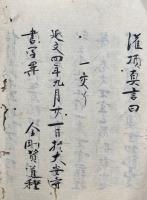 灌頂真言曰
一交了
延文四年九月廿一日於大安寺
書写畢
金剛資道種